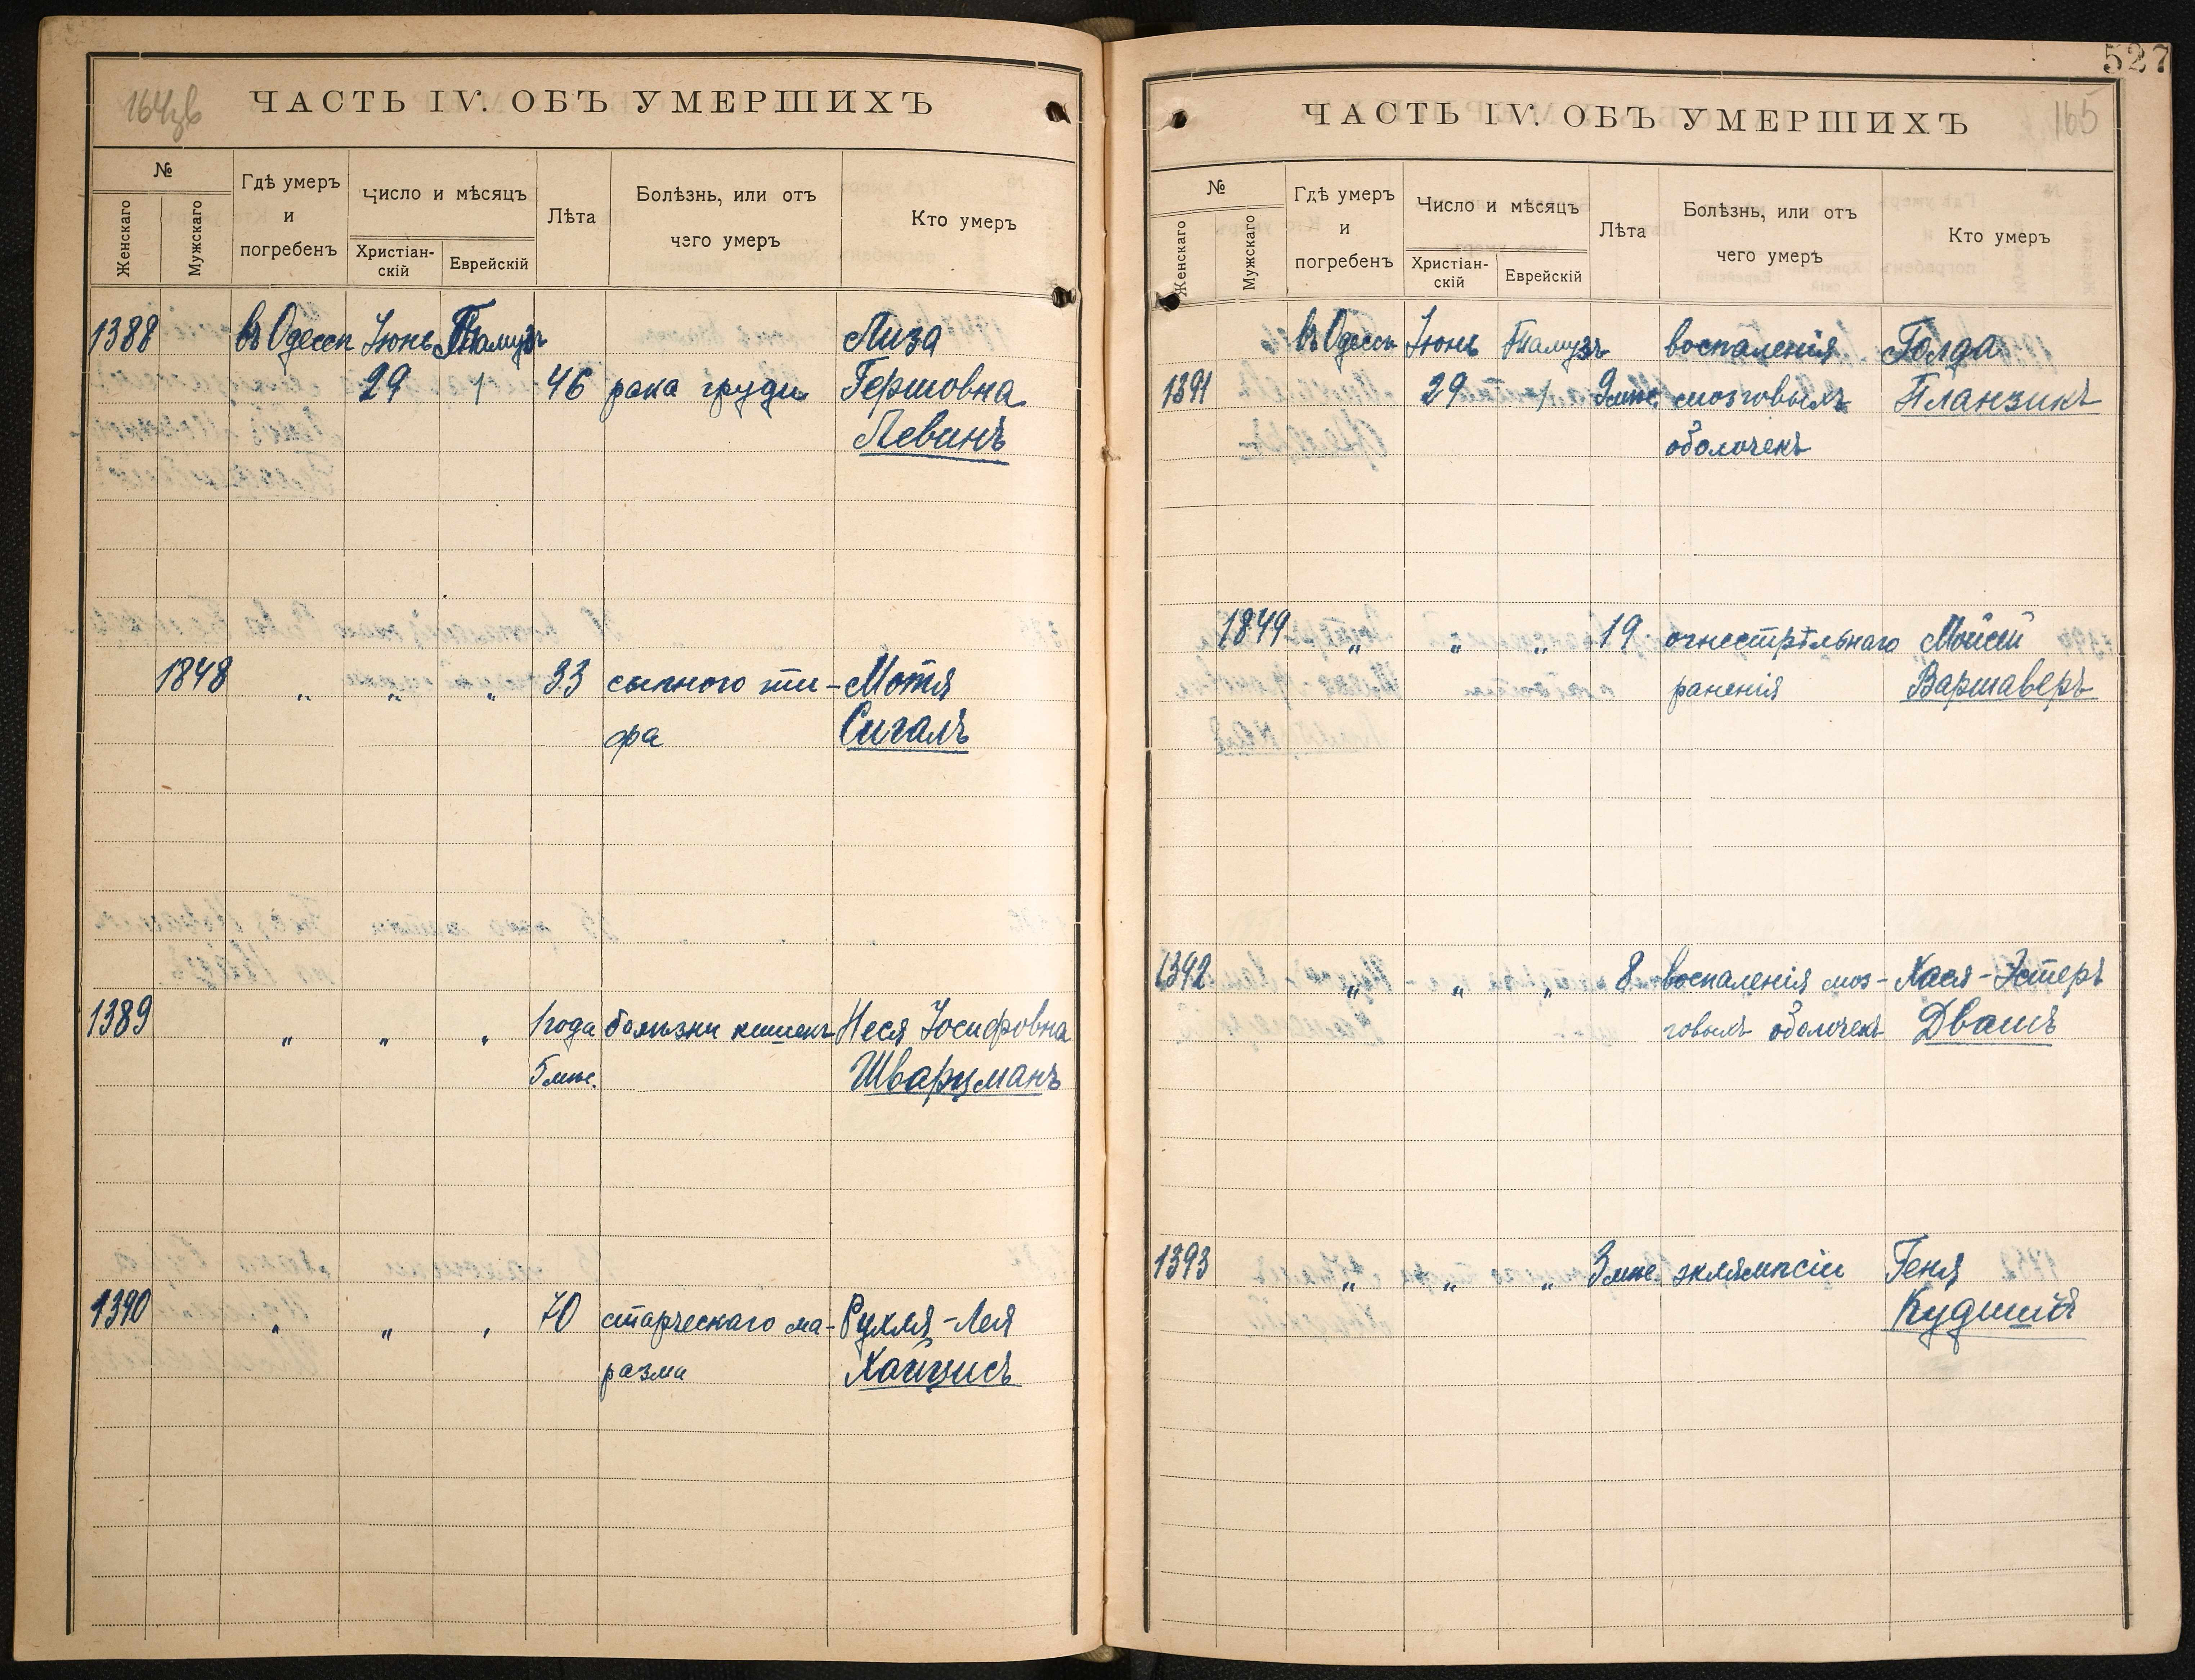 164зв
ЧАСТЬ IV. ОБЪ УМЕРШИХЪ
№
Женскаго
Мужскаго
Гдѣ умеръ
и
погребенъ
Число и мѣсяцъ
Христіан-
скій
Еврейскій
Лѣта
Болѣзнь, или отъ
чего умеръ
Кто умеръ
1388 въ Одессѣ Іюнь Тамузъ Лиза
29 1 46 рака груди Гершовна
Левинъ
1848 „ „ „ 33 сыпного ти- Мотя
фа Сигалъ
1389 „ „ „ 1 года болѣзни кишекъ Неся Іосифовна
5 мѣс. Шварцманъ
1390 „ „ „ 70 старческаго ма- Рухля-Лея
разма Хайцисъ
527
165
ЧАСТЬ IV. ОБЪ УМЕРШИХЪ
№
Женскаго
Мужскаго
Гдѣ умеръ
и
погребенъ
Число и мѣсяцъ
Христіан-
скій
Еврейскій
Лѣта
Болѣзнь, или отъ
чего умеръ
Кто умеръ
въ Одессѣ Іюнь Тамузъ воспаленія Голда
1391 29 1 9 мѣс. мозговыхъ Планзикъ
оболочекъ
1849 „ „ „ 19 огнестрѣльнаго Мойсей
раненія Варшаверъ
1392 „ „ „ 8 воспаленія моз- Хася-Эстеръ
говыхъ оболочекъ Двашъ
1393 „ „ „ 3 мѣс. эклямпсіи Геня